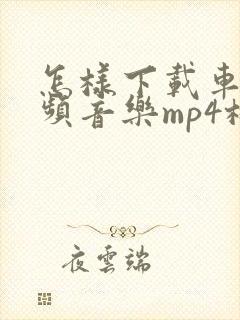 怎樣下載車
頻音樂mp4
夜雲端